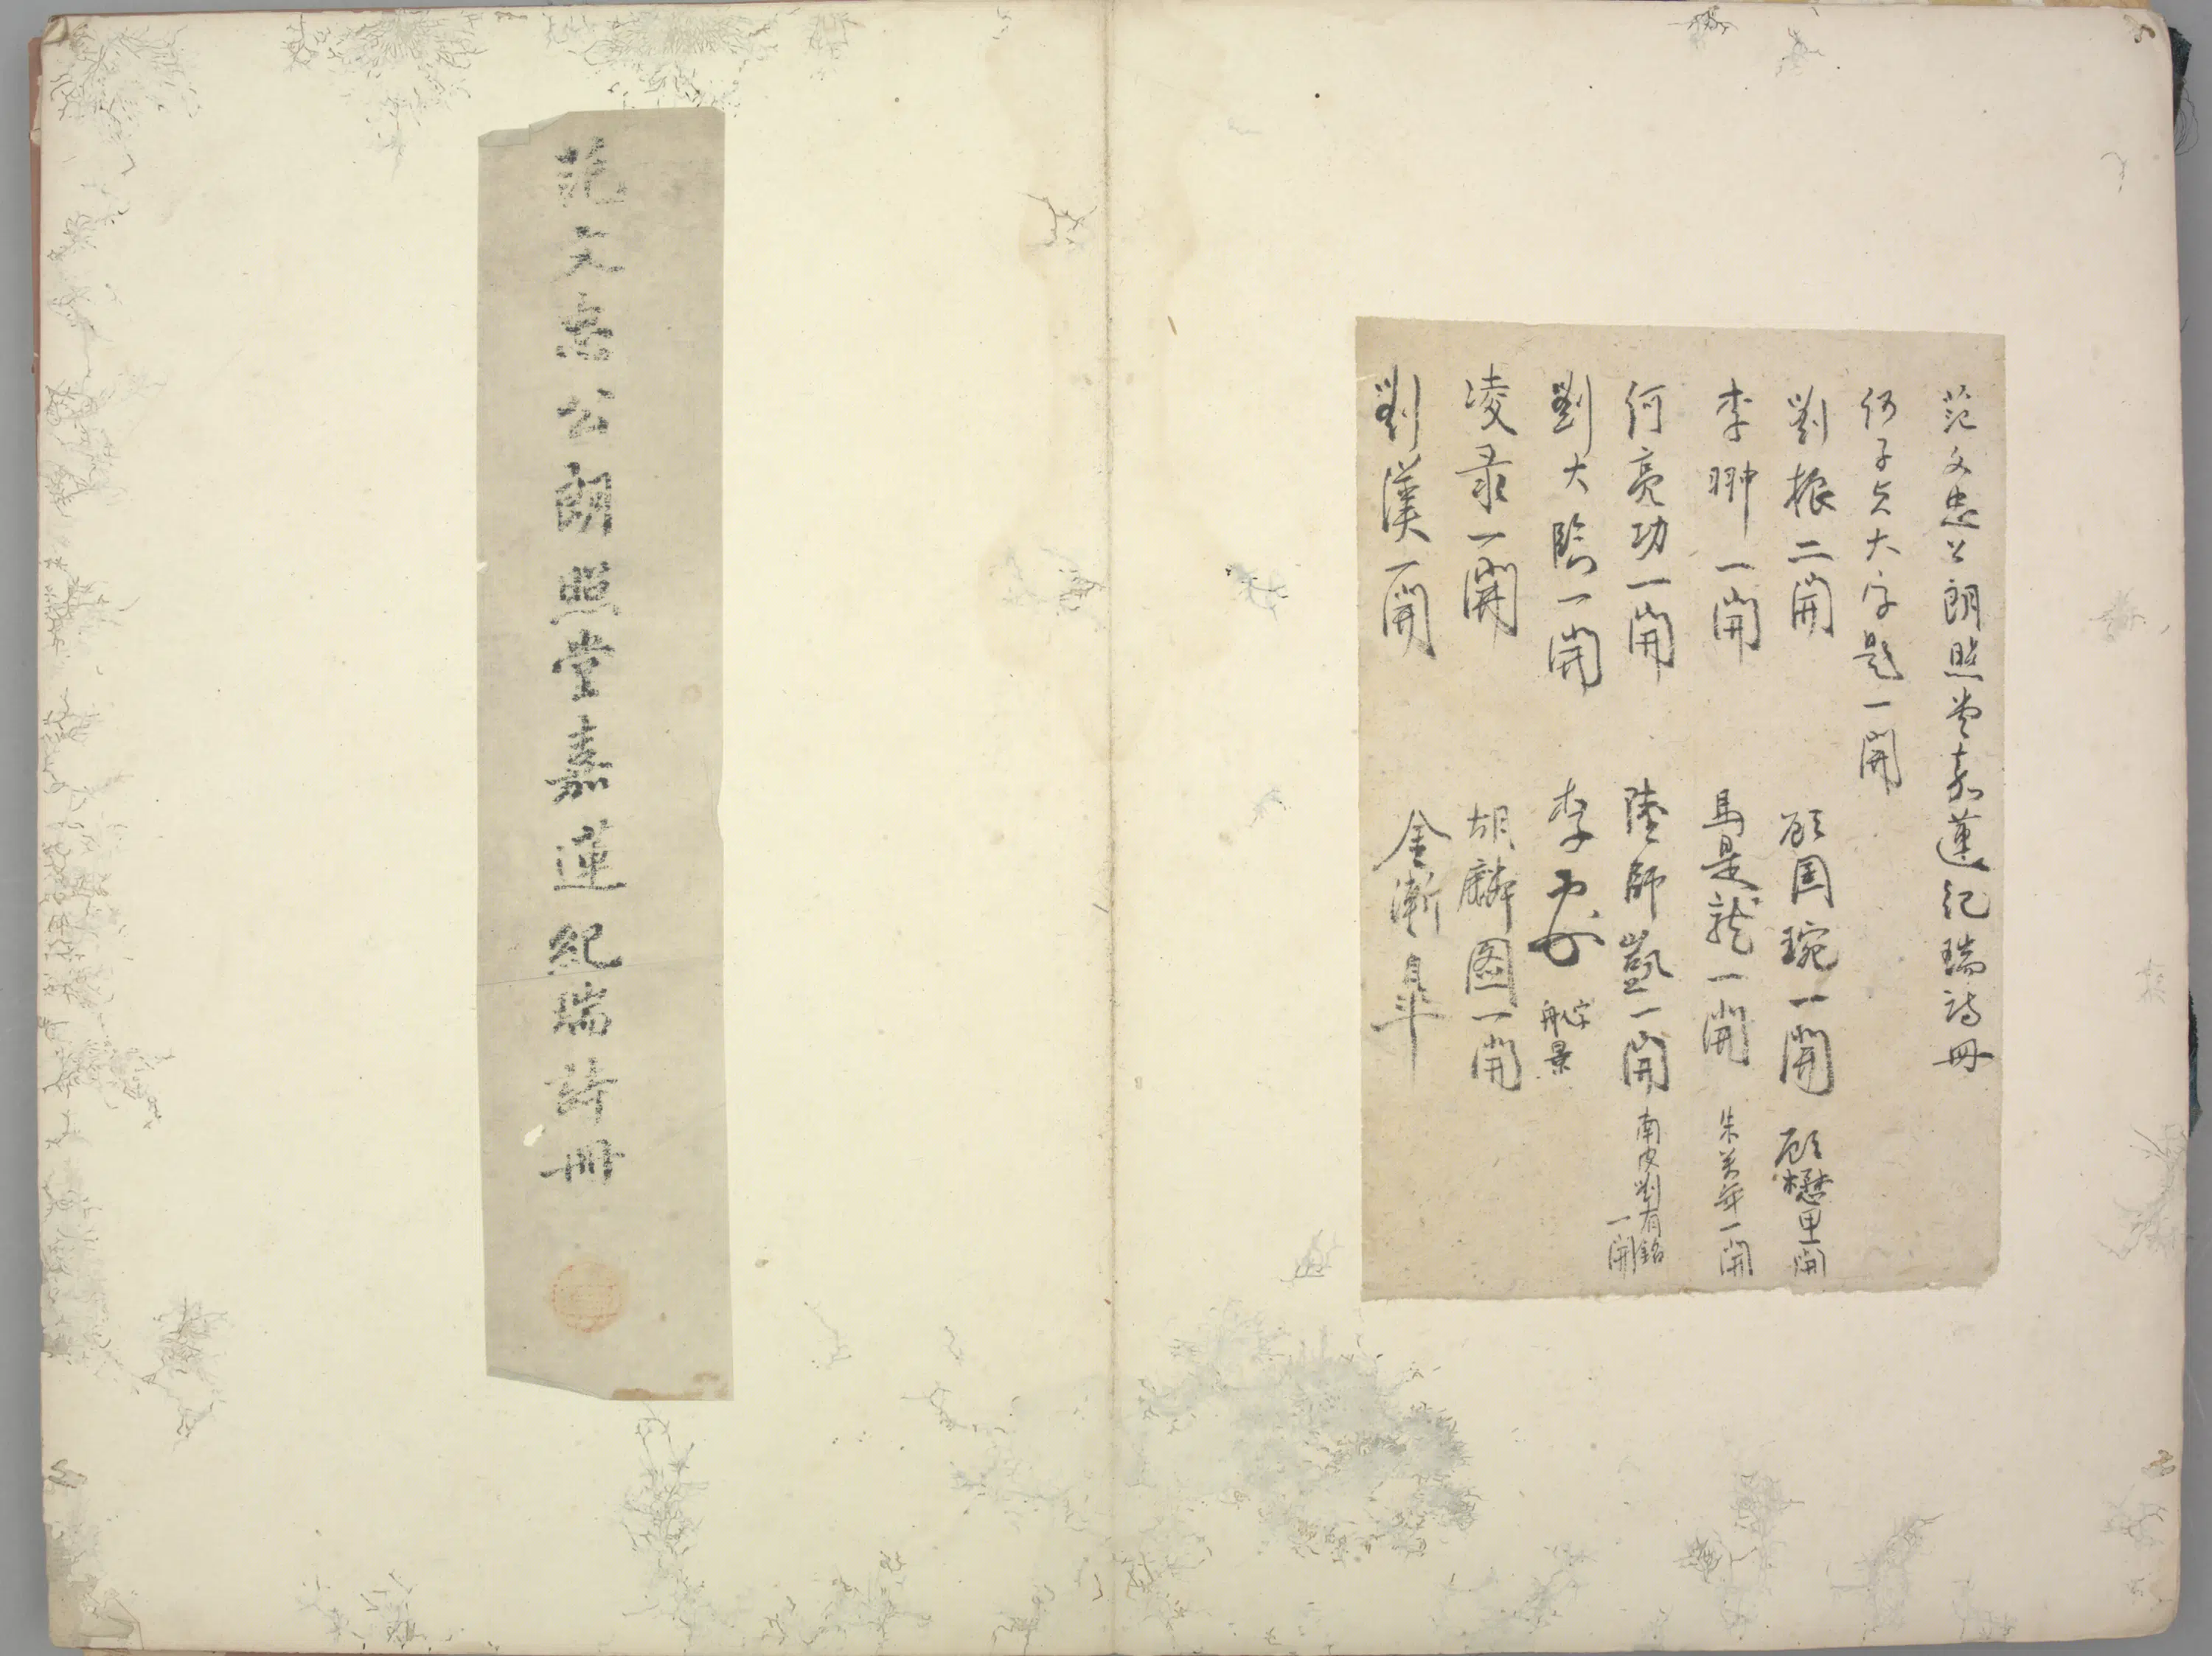 范文忠公朗照堂嘉蓮紀瑞詩冊
何子貞大字題一開
劉振二開 顧國琬一開 顧懋里一開
李翀一開 馬是龍一開 朱萬年一開
何亮功一開 陸師凱一開 南皮劉有銘一開
劉大臨一開 李 字 景
凌录一開 胡麟图一開
劉漢一開 金漸皋
范文忠公朗照堂嘉蓮紀瑞詩冊